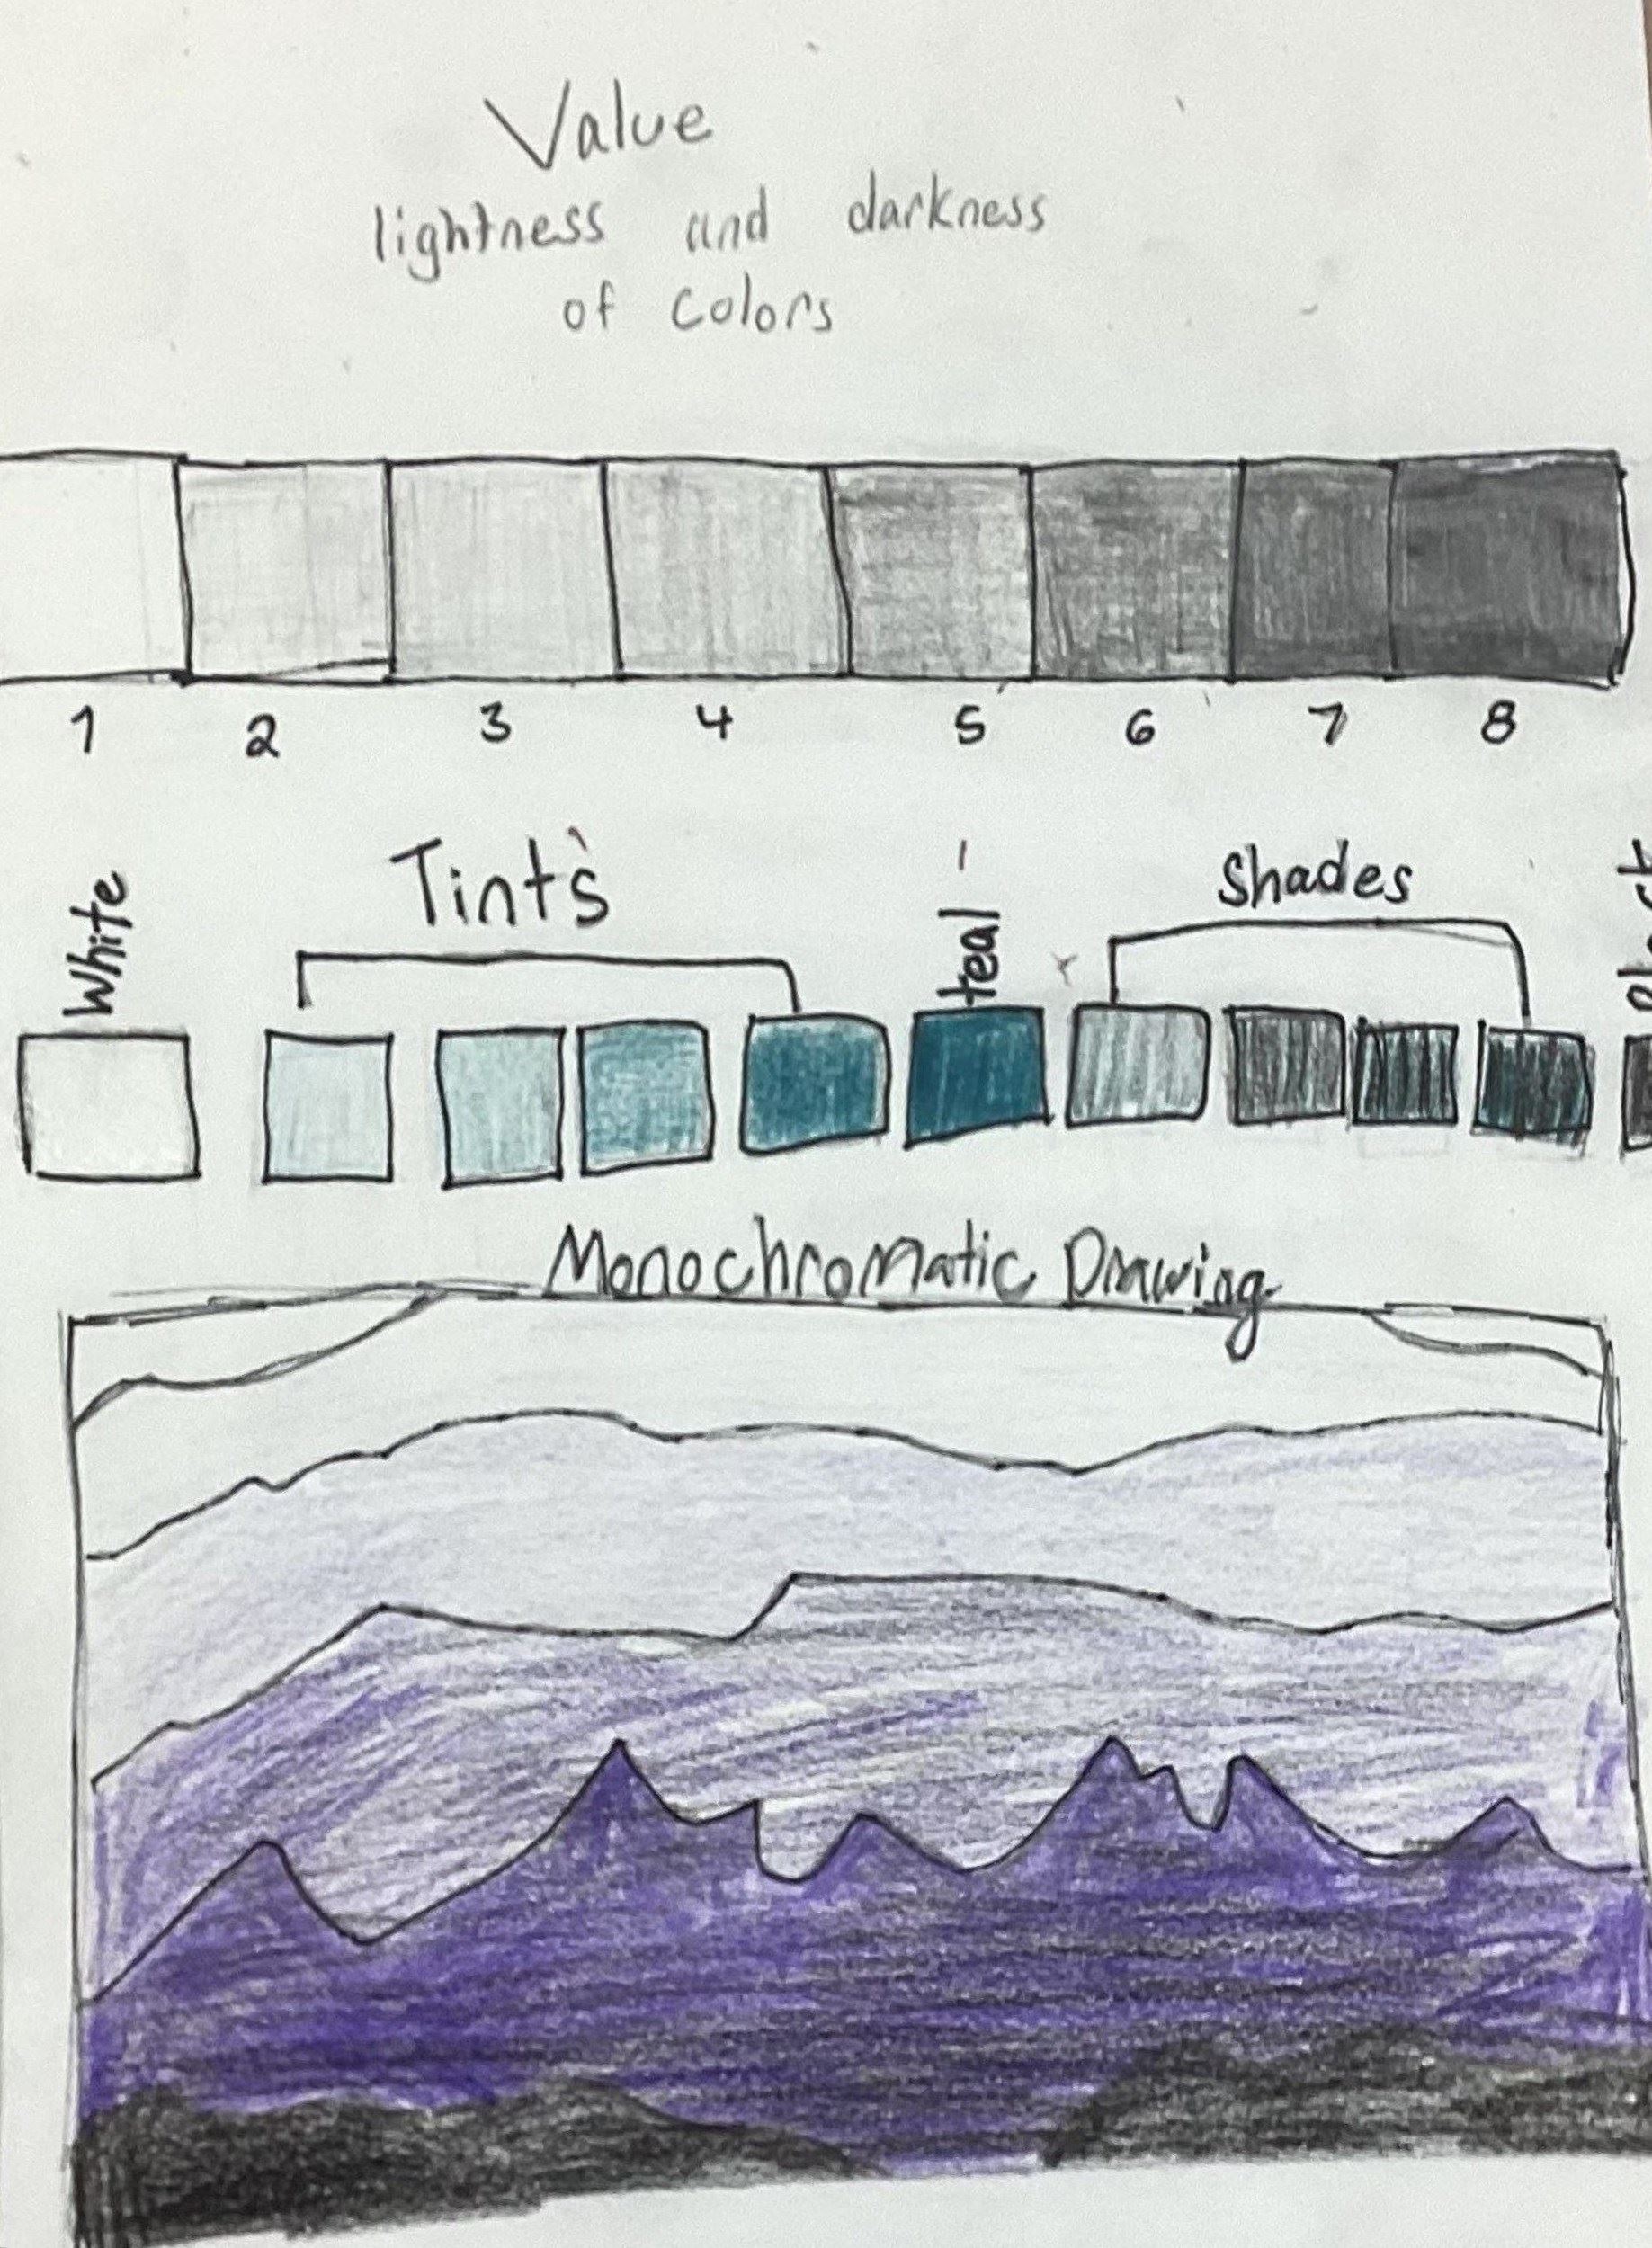 Value
lightness and darkness
of colors
1 2 3 4 5 6 7 8
White
Tint's
teal
Shades
Monochromatic Drawing